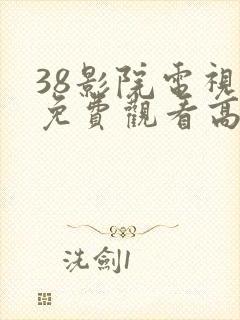 38影院電視
免費觀看高
洗劍1